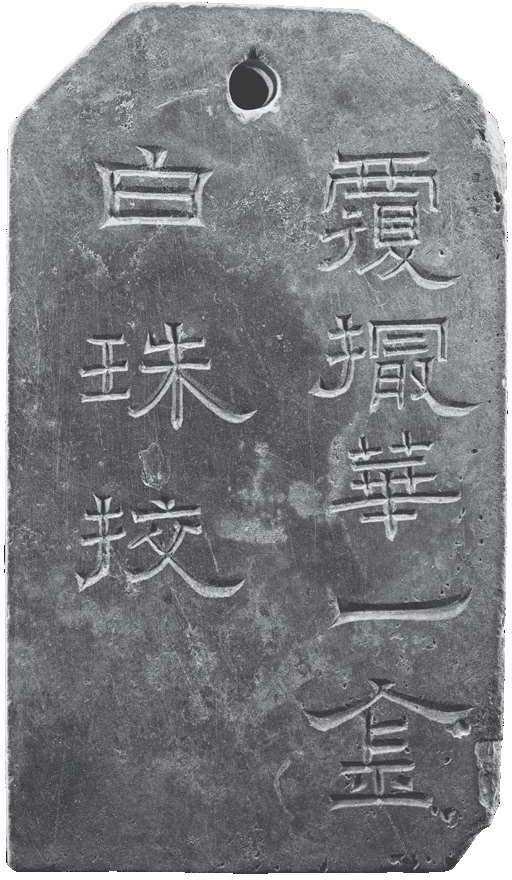 覆撮華一金
白珠挍